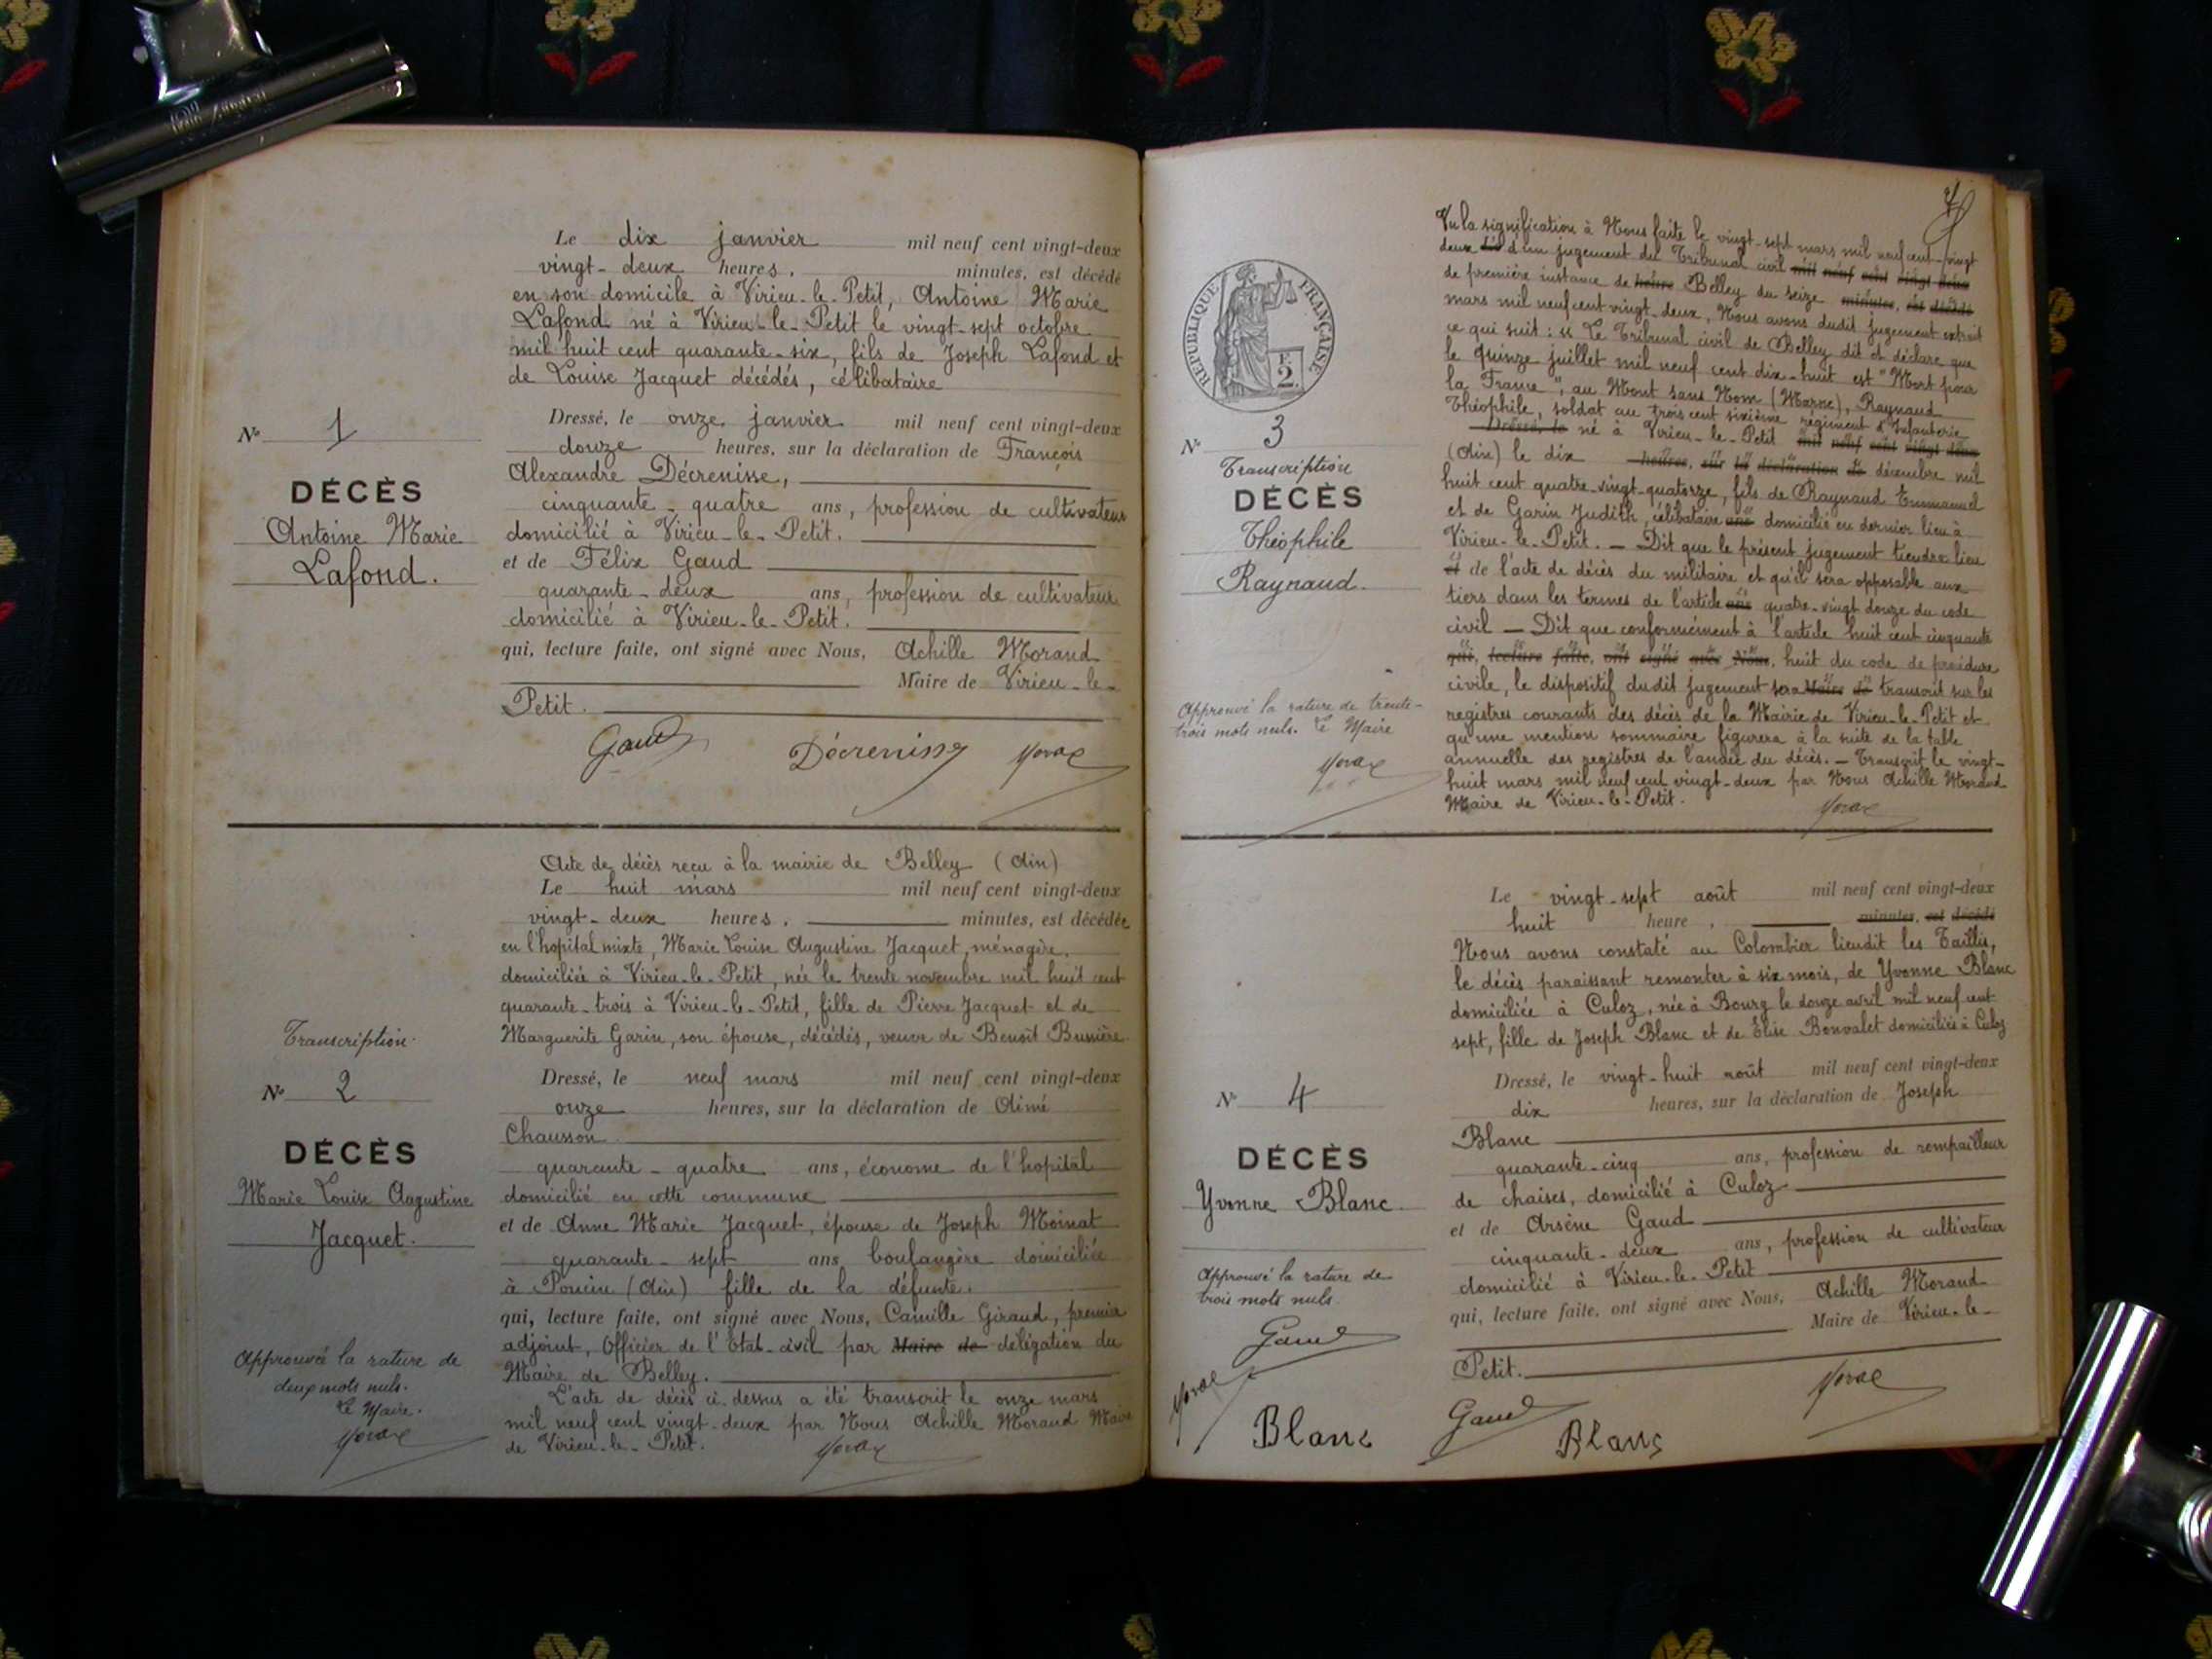 Le dix janvier mil neuf cent vingt-deux
vingt-deux heures, minutes, est décédé
en son domicile à Virieu-le-Petit, Antoine Marie
Lafond né à Virieu-le-Petit le vingt-sept octobre
mil huit cent quarante-six, fils de Joseph Lafond et
de Louise Jacquet décédés, célibataire
Dressé, le onze janvier mil neuf cent vingt-deux
douze heures, sur la déclaration de François
Alexandre Décrenisse,
cinquante-quatre ans, profession de cultivateur
domicilié à Virieu-le-Petit.
et de Félix Gaud
quarante-deux ans, profession de cultivateur
domicilié à Virieu-le-Petit.
qui, lecture faite, ont signé avec Nous, Achille Morand
Maire de Virieu-le-
Petit.
Gaud Décrenisse Morand
N° 1
DÉCÈS
Antoine Marie
Lafond.
Acte de décès reçu à la mairie de Belley (Ain)
Le huit mars mil neuf cent vingt-deux
vingt-deux heures, minutes, est décédée
en l'hopital mixte, Marie Louise Augustine Jacquet, ménagère,
domiciliée à Virieu-le-Petit, née le trente novembre mil huit cent
quarante-trois à Virieu-le-Petit, fille de Pierre Jacquet et de
Marguerite Garin, son épouse, décédés, veuve de Benoît Bussière.
Dressé, le neuf mars mil neuf cent vingt-deux
onze heures, sur la déclaration de Aimé
Chausson
quarante-quatre ans, économe de l'hopital
domicilié en cette commune
et de Anne Marie Jacquet, épouse de Joseph Moinat
quarante-sept ans boulangère domiciliée
à Poncin (Ain) fille de la défunte.
qui, lecture faite, ont signé avec Nous, Camille Giraud, premier
adjoint, Officier de l'Etat-civil par Maire de délégation du
Maire de Belley.
L'acte de décès ci-dessus a été transcrit le onze mars
mil neuf cent vingt-deux par Nous Achille Morand Maire
de Virieu-le-Petit. Morand
Transcription.
N° 2
DÉCÈS
Marie Louise Augustine
Jacquet.
Approuvé la rature de
deux mots nuls.
Le Maire.
Morand
Vu la signification à Nous faite le vingt-sept mars mil neuf cent-vingt
deux d'un jugement du Tribunal civil mil neuf cent vingt-deux
de première instance de heure Belley du seize minutes, est décédé
mars mil neuf cent vingt-deux, Nous avons dudit jugement extrait
ce qui suit : « Le Tribunal civil de Belley dit et déclare que
le quinze juillet mil neuf cent dix-huit est "Mort pour
la France", au Mont sans Nom (Marne), Raynaud
Théophile, soldat au trois cent sixième régiment d'Infanterie
Dressé, le né à Virieu-le-Petit mil neuf cent vingt-deux
(Ain) le dix heures, sur la déclaration de décembre mil
huit cent quatre-vingt-quatorze, fils de Raynaud Emmanuel
et de Garin Judith, célibataire ans domicilié en dernier lieu à
Virieu-le-Petit. — Dit que le présent jugement tiendra lieu
et de l'acte de décès du militaire et qu'il sera opposable aux
tiers dans les termes de l'article ans quatre-vingt douze du code
civil — Dit que conformément à l'article huit cent cinquante
qui, lecture faite, ont signé avec Nous, huit du code de procédure
civile, le dispositif dudit jugement sera Maire de transcrit sur les
registres courants des décès de la Mairie de Virieu-le-Petit et
qu'une mention sommaire figurera à la suite de la table
annuelle des registres de l'année du décès. — Transcrit le vingt-
huit mars mil neuf cent vingt-deux par Nous Achille Morand
Maire de Virieu-le-Petit. Morand
RÉPUBLIQUE FRANÇAISE
F.
2.
N° 3
Transcription
DÉCÈS
Théophile
Raynaud.
Approuvé la rature de trente-
trois mots nuls. Le Maire
Morand
Le vingt-sept août mil neuf cent vingt-deux
huit heure, minutes, est décédé
Nous avons constaté au Colombier lieudit les Taillis,
le décès paraissant remonter à six mois, de Yvonne Blanc
domiciliée à Culoz, née à Bourg le douze avril mil neuf cent
sept, fille de Joseph Blanc et de Elise Bonvalet domiciliés à Culoz
Dressé, le vingt-huit août mil neuf cent vingt-deux
dix heures, sur la déclaration de Joseph
Blanc
quarante-cinq ans, profession de rempailleur
de chaises, domicilié à Culoz
et de Arsène Gaud
cinquante-deux ans, profession de cultivateur
domicilié à Virieu-le-Petit
qui, lecture faite, ont signé avec Nous, Achille Morand
Maire de Virieu-le-
Petit.
Gaud Blanc Morand
N° 4
DÉCÈS
Yvonne Blanc
Approuvé la rature de
trois mots nuls.
Gaud
Morand
Blanc